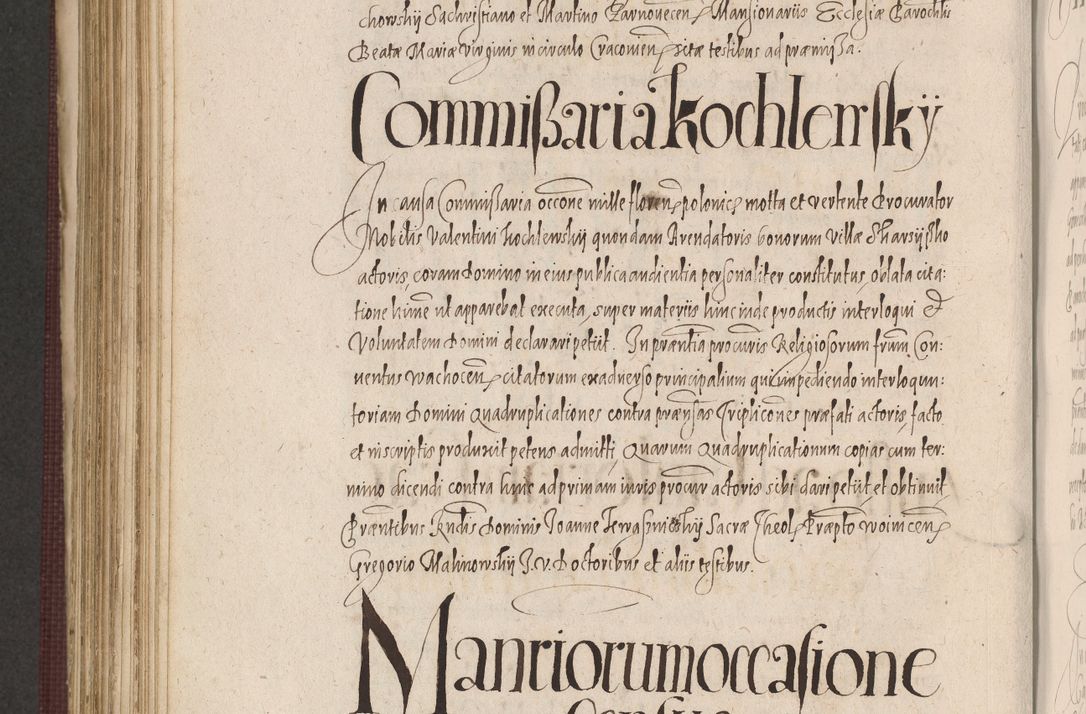 chowskij Sachristiano et Martino Czarnovecen Mansionariis Ecclesiæ Parochlis
Beatæ Mariæ Virginis in circulo Cracovien sitæ testibus ad præmissa.
Commißaria Kochlewskÿ
In causa Commissaria occone mille floren polonic mota et vertente Procurator
Nobilis Valentini Kochlewskij quondam Arendatoris bonorum Villæ
actoris, coram Domino in eius publica audientia personaliter constitutus, oblata cita:
tione hinc ut apparebat executa, super materiis hinc inde productis interloqui et
Voluntatem Domini declarari petiit. In præntia procuris Religiosorum frum Con:
ventus Wachocen citatorum ex adverso principalium qui impediendo interloquu:
toriam Domini Quadruplicationes contra prætensas Triplicones præfati actoris, facto
et in scriptis produxit petens admitti, Quarum Quadruplicationum copias cum ter:
mino dicendi contra hinc ad primam iuris procur actoris sibi dari petiit et obtinuit
Præntibus Rndis Dominis Joanne Sacræ Theol Præpto Woinicen
Gregorio Malinowskij J.V. Doctoribus et aliis testibus.
Manriorum occasione
Census